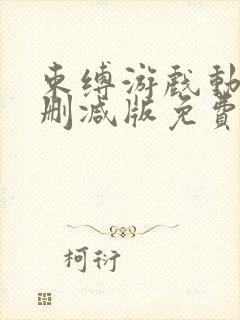 束缚游戏动
删减版免费
柯衍